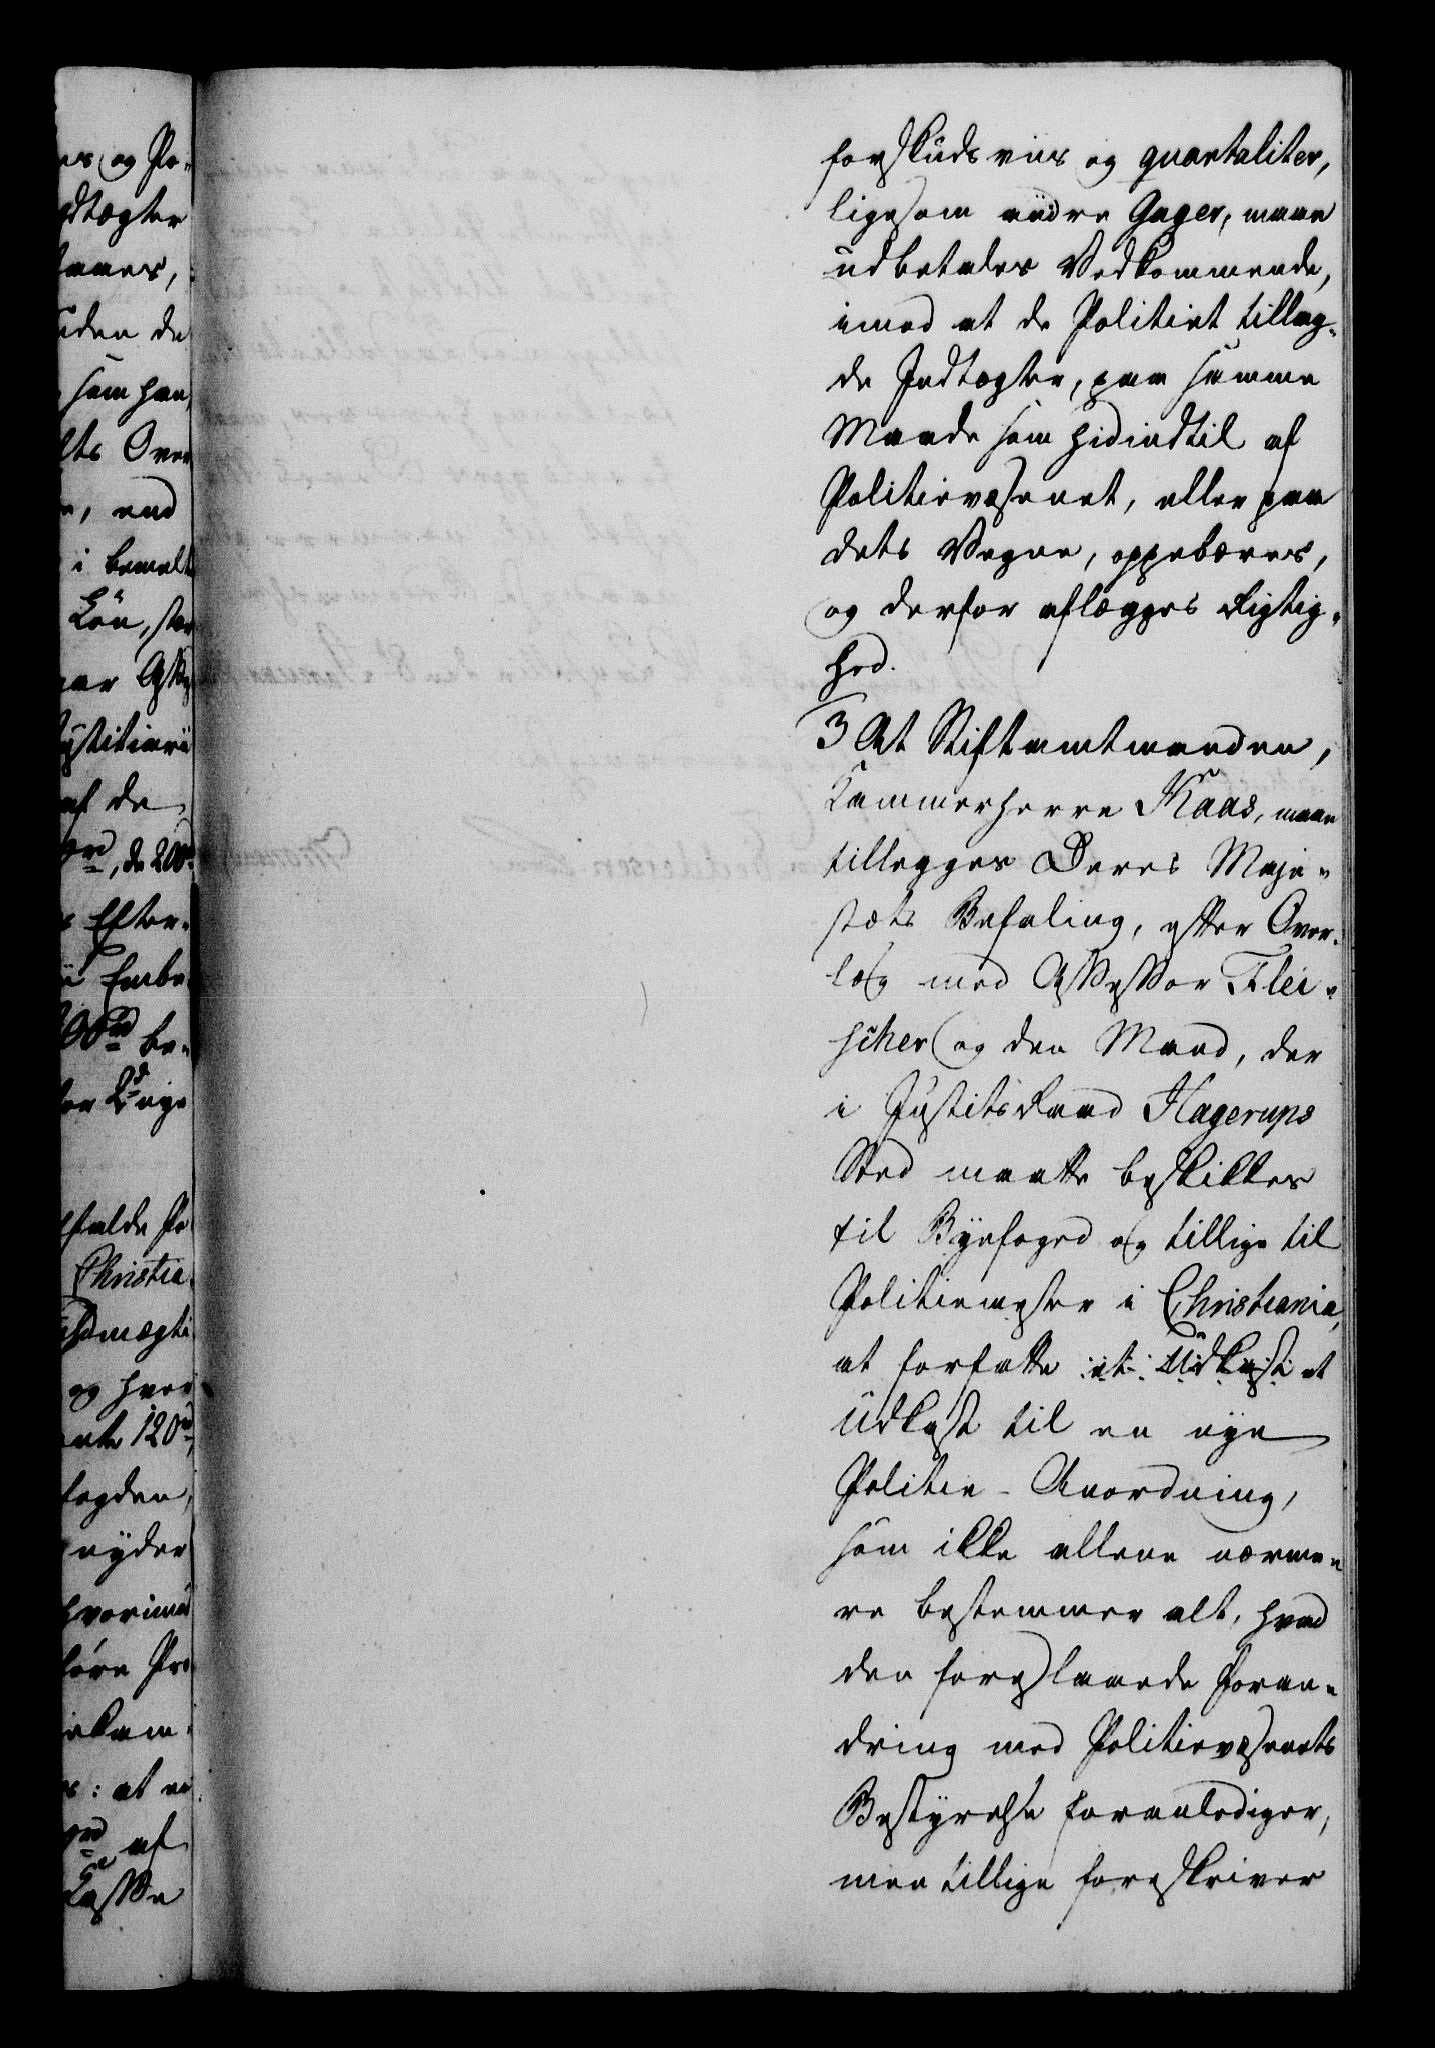 forskudsviis og quartaliter,
ligesom andre Gager, maae
udbetales Vedkommende,
imod at de Politiet tillag-
de Indtægter, paa samme
Maade som hidindtil af
Politievæsenet, eller paa
dets Vegne, oppebæres,
og derfor aflægges Rigtig-
hed.
3 At Stiftamtmanden,
Kammerherre Kaas, maae
tillegges Deres Maje-
stæts Befaling, efter Over-
læg med Assessor Flei-
scher og den Mand, der
i Justitsraad Hagerups
Sted maatte beskikkes
til Byefoged og tillige til
Politiemester i Christiania,
at forfatte et Udkast et
Udkast til en nye
Politie-Anordning,
som ikke allene nærme-
re bestemmer alt, hvad
den foreslaaede Foran-
dring med Politievæsenets
Bestyrelse foranlediger,
men tillige foreskriver
es og Po-
dtægter
som han,
lts Over
, end
i bemelte
Løn, stor
af de
de 200
Efter-
Embe
be-
nye
Christia
og hver
120
fogden,
nyder
hvorimod
: at en
af
Kasse